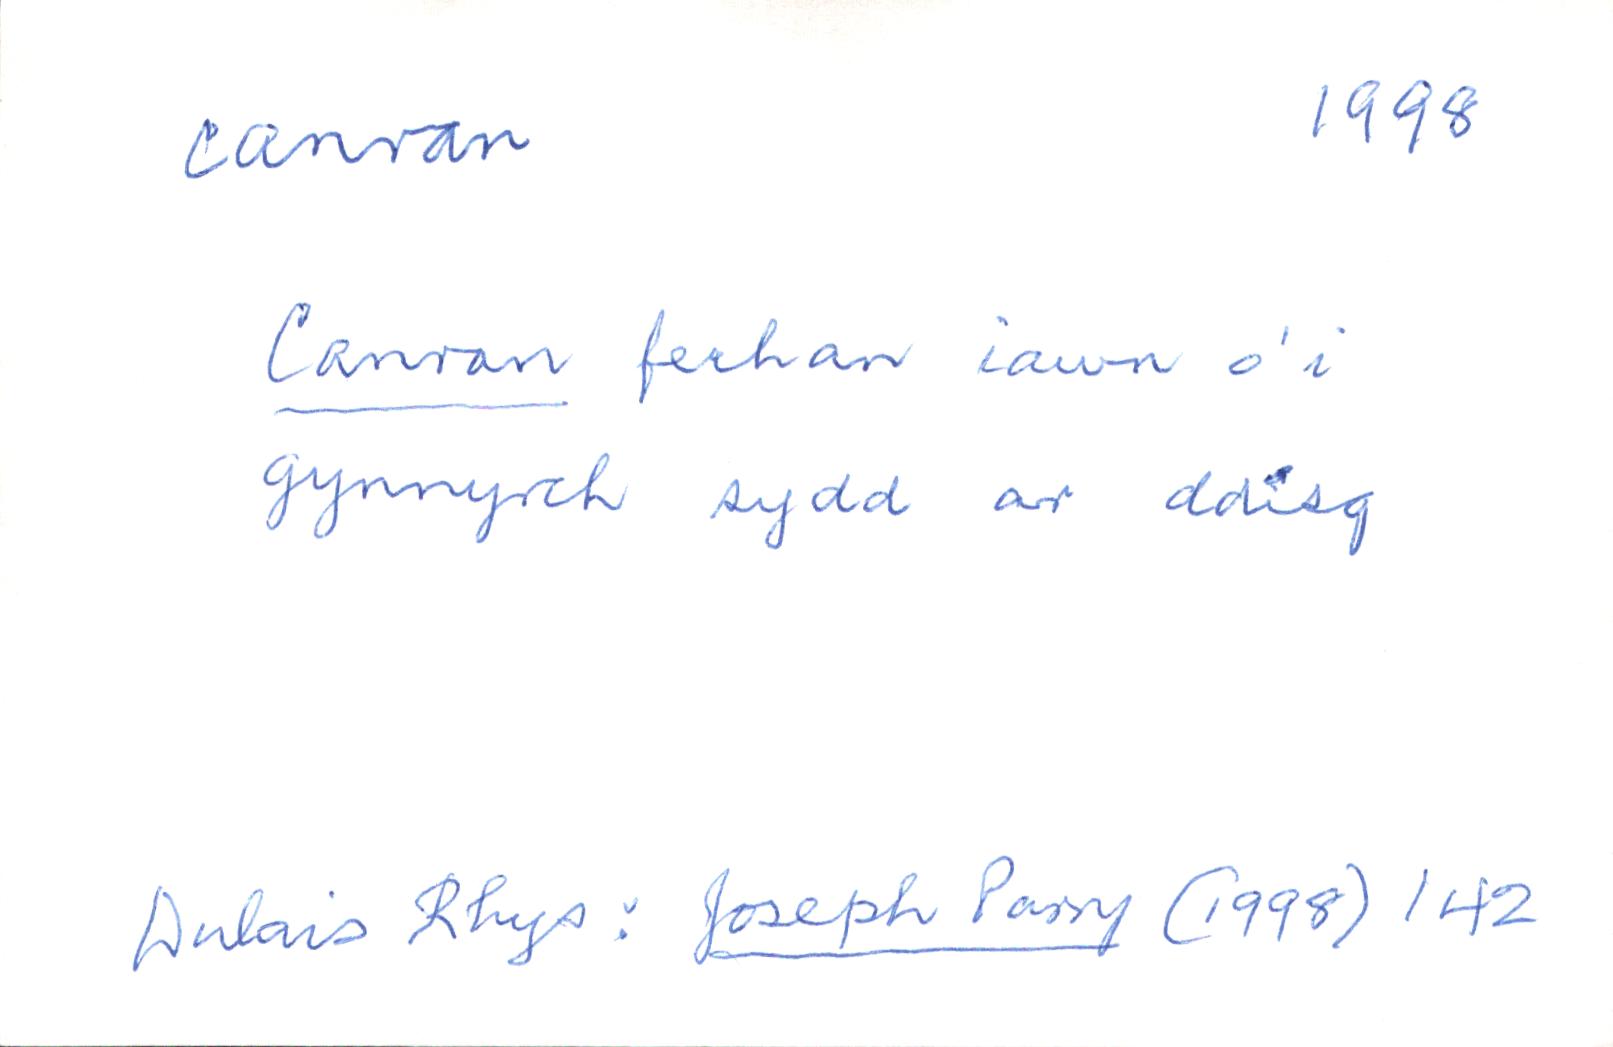 canran
1998
Canran fechan iawn o'i
gynnyrch sydd ar ddisg
Dulais Rhys: Joseph Parry (1998) 142